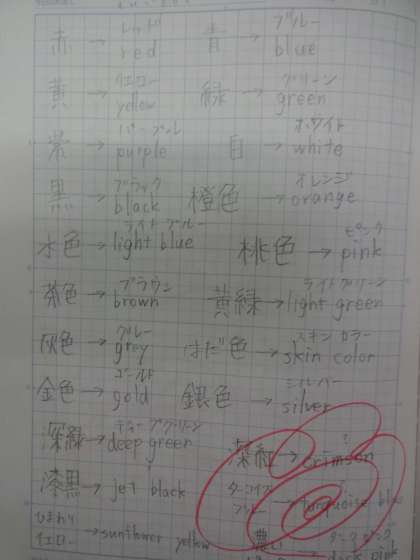 赤 → レッド red 青 → ブルー blue
黄 → イエロー yellow 緑 → グリーン green
紫 → パープル purple 白 → ホワイト white
黒 → ブラック black 橙色 → オレンジ orange
水色 → ライトブルー light blue 桃色 → ピンク pink
茶色 → ブラウン brown 黄緑 → ライトグリーン light green
灰色 → グレー grey はだ色 → スキンカラー skin color
金色 → ゴールド gold 銀色 → シルバー silver
深緑 → ディープグリーン deep green 深紅 → ? crimson
漆黒 → jet black ターコイズブルー → ? turquoise blue
ひまわりイエロー → sunflower yellow 濃い → ダークピンク dark pink